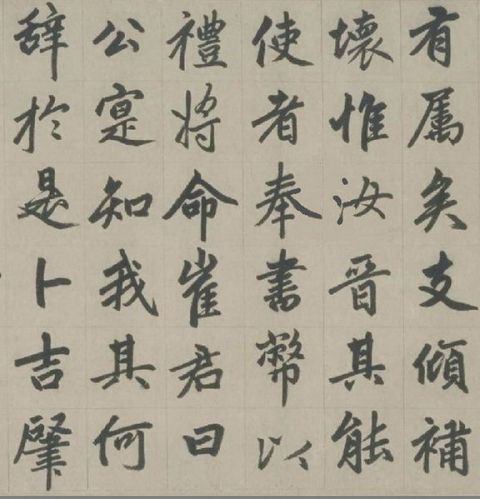 有属矣支傾補
壞惟汝晉其能
使者奉書幣以
禮將命崔君曰
公寔知我其何
辞於是卜吉肈